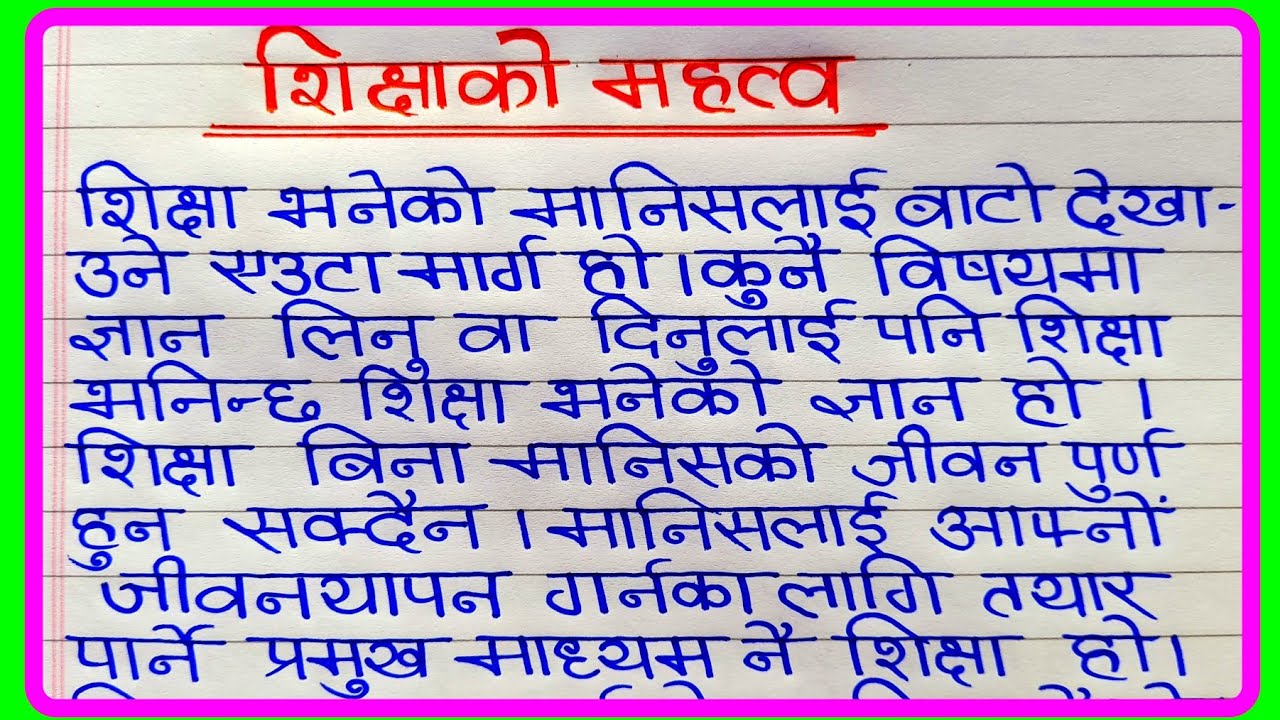 शिक्षाको महत्व
शिक्षा भनेको मानिसलाई बाटो देखा-
उने एउटा मार्ग हो । कुनै विषयमा
ज्ञान लिनु वा दिनुलाई पनि शिक्षा
भनिन्छ शिक्षा भनेको ज्ञान हो ।
शिक्षा बिना मानिसको जीवन पुर्ण
हुन सक्दैन । मानिसलाई आफ्नों
जीवनयापन गर्नका लागि तयार
पार्ने प्रमुख माध्यम नै शिक्षा हो।